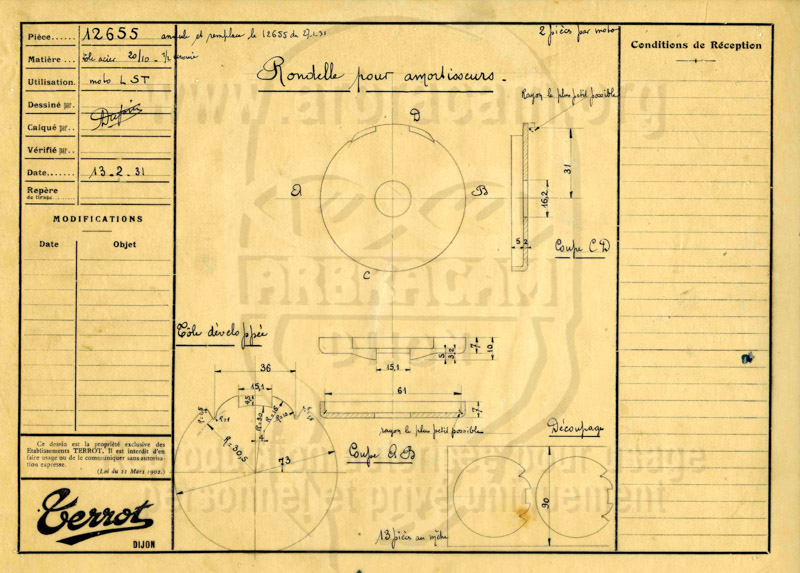 Pièce 12655 annule et remplace le 12655 du 27.1.31
2 pièces par moto
Matière Tôle acier 20/10
Utilisation moto LST
Dessiné par
Calqué par
Vérifié par
Date 13_2_31
Repère
du tirage
MODIFICATIONS
Date Objet
Conditions de Réception
Rondelle pour amortisseurs
Rayon le plus petit possible
D
A
B
C
31
16,2
5 2
Coupe CD
Tôle développée
36
15,1
R=30
R=30,5
73
15,1
5
3,2
7
10
61
7
rayon le plus petit possible
Coupe A B
Découpage
90
13 pièces au mètre
Ce dessin est la propriété exclusive des
Etablissements TERROT. Il est interdit d'en
faire usage ou de le communiquer sans autorisa-
tion expresse.
(Loi du 11 Mars 1902.)
Terrot
DIJON
www.arbracam.org
ARBRACAM